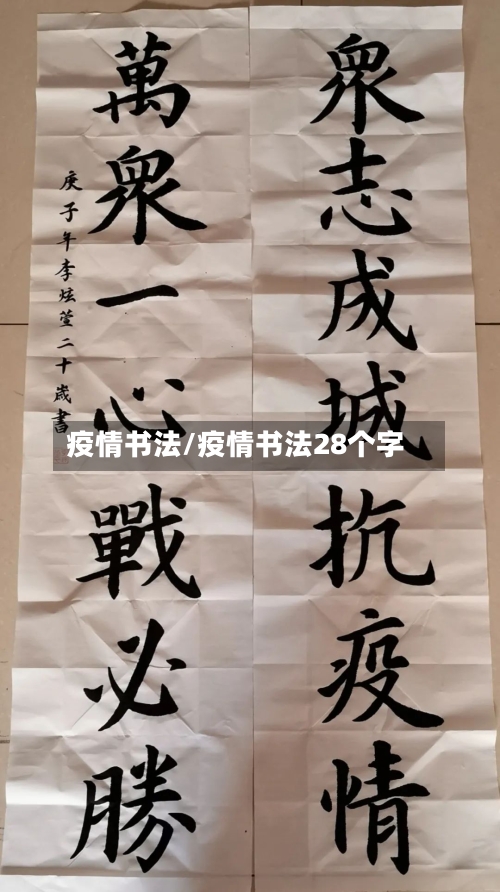 眾志成城抗疫情
萬眾一心戰必勝
庚子年李炫萱二十歲書
疫情书法/疫情书法28个字